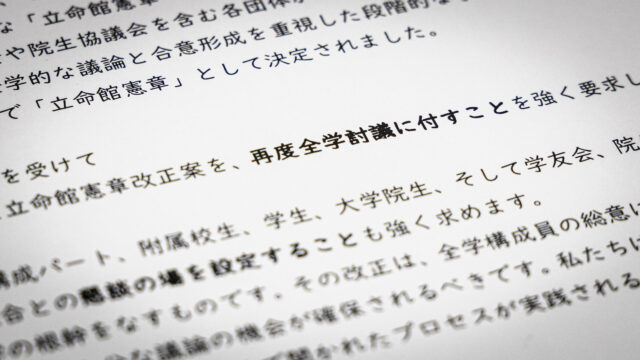 な「立命館憲章
や院生協議会を含む各団体が
学的な議論と合意形成を重視した段階的な
で「立命館憲章」として決定されました。
を受けて
立命館憲章改正案を、再度全学討議に付すことを強く要求し
構成パート、附属校生、学生、大学院生、そして学友会、院
合との懇談の場を設定することも強く求めます。
の根幹をなすものです。その改正は、全学構成員の総意に
な議論の機会が確保されるべきです。私たちは
開かれたプロセスが実践される